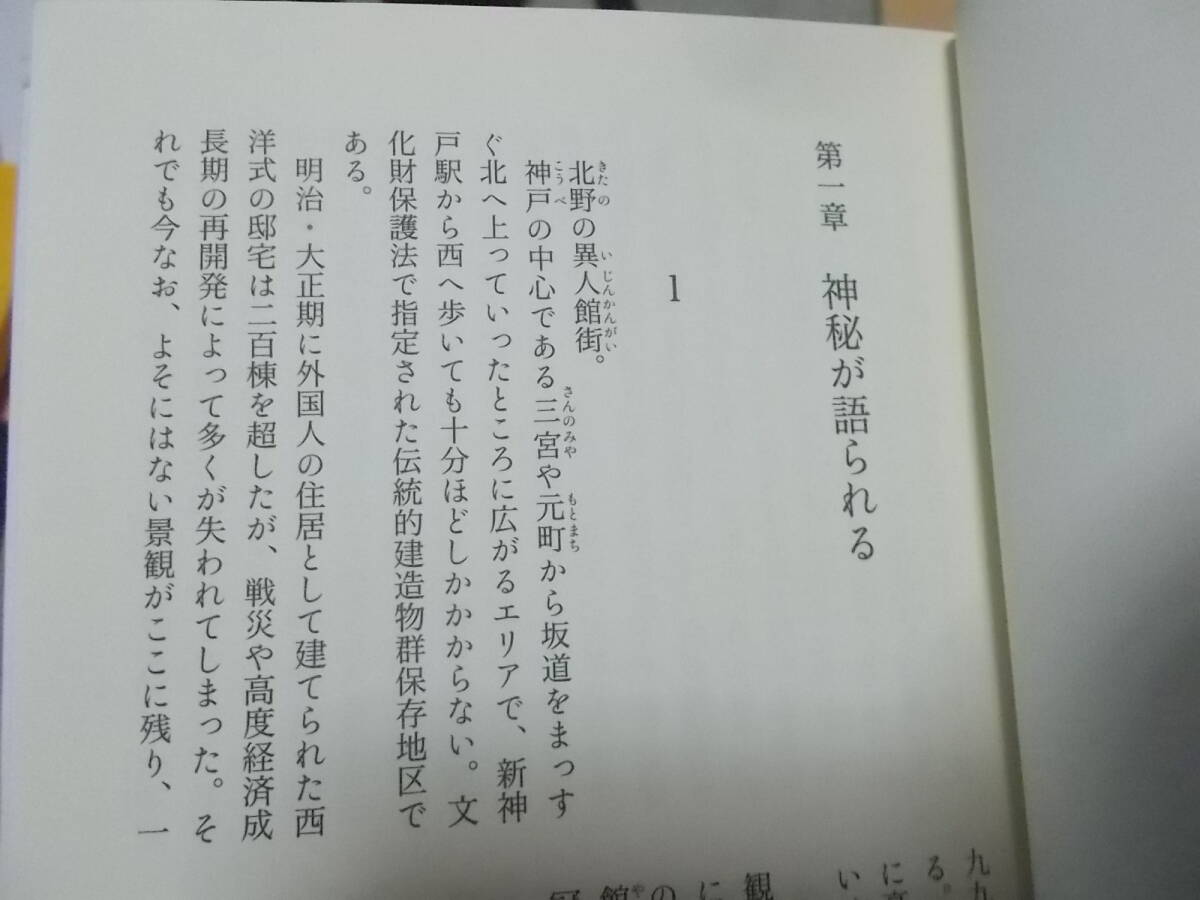 第一章　神秘が語られる
1
北野の異人館街。
神戸の中心である三宮や元町から坂道をまっす
ぐ北へ上っていったところに広がるエリアで、新神
戸駅から西へ歩いても十分ほどしかかからない。文
化財保護法で指定された伝統的建造物群保存地区で
ある。
明治・大正期に外国人の住居として建てられた西
洋式の邸宅は二百棟を超したが、戦災や高度経済成
長期の再開発によって多くが失われてしまった。そ
れでも今なお、よそにはない景観がここに残り、一